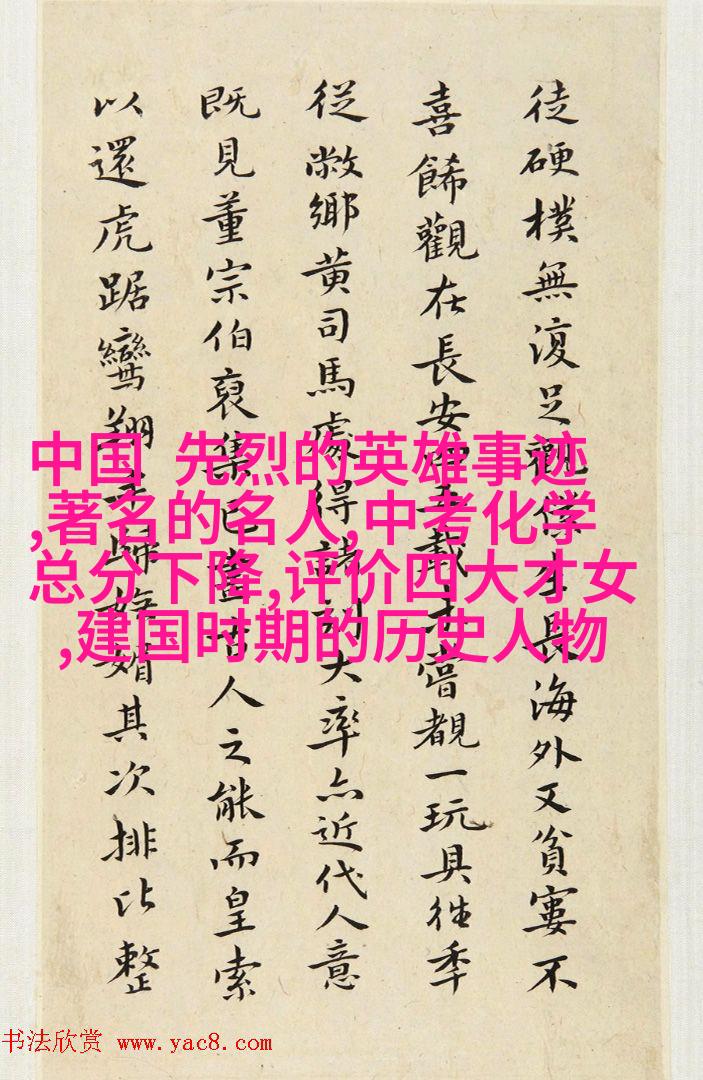 徒硬樸無復足觀僕生長海外又貧寠不
喜餙觀在長安五載未嘗覩一玩具往季
從敝鄉黄司馬處得諸刻大率亦近代人意
既見董宗伯裒集已古人之能而皇索
以還虎踞鸞翔媚其次排比整
中国 先烈的英雄事迹
,著名的名人,中考化学
总分下降,评价四大才女
,建国时期的历史人物
书法欣赏 www.yac8.com